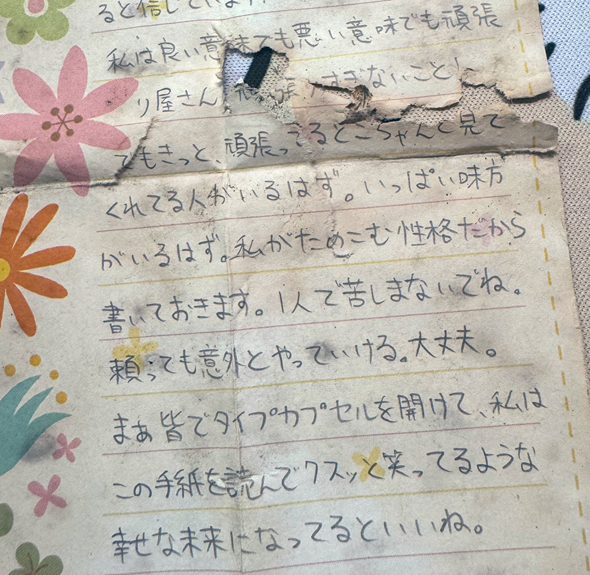 ると信じています
私は良い意味でも悪い意味でも頑張
り屋さん 頑張 すぎないこと!
でもきっと、頑張ってるとこちゃんと見て
くれてる人がいるはず。いっぱい味方
がいるはず。私がためこむ性格だから
書いておきます。1人で苦しまないでね。
頼っても意外とやっていける。大丈夫。
まあ皆でタイプカプセルを開けて、私は
この手紙を読んでクスッと笑ってるような
幸せな未来になってるといいね。